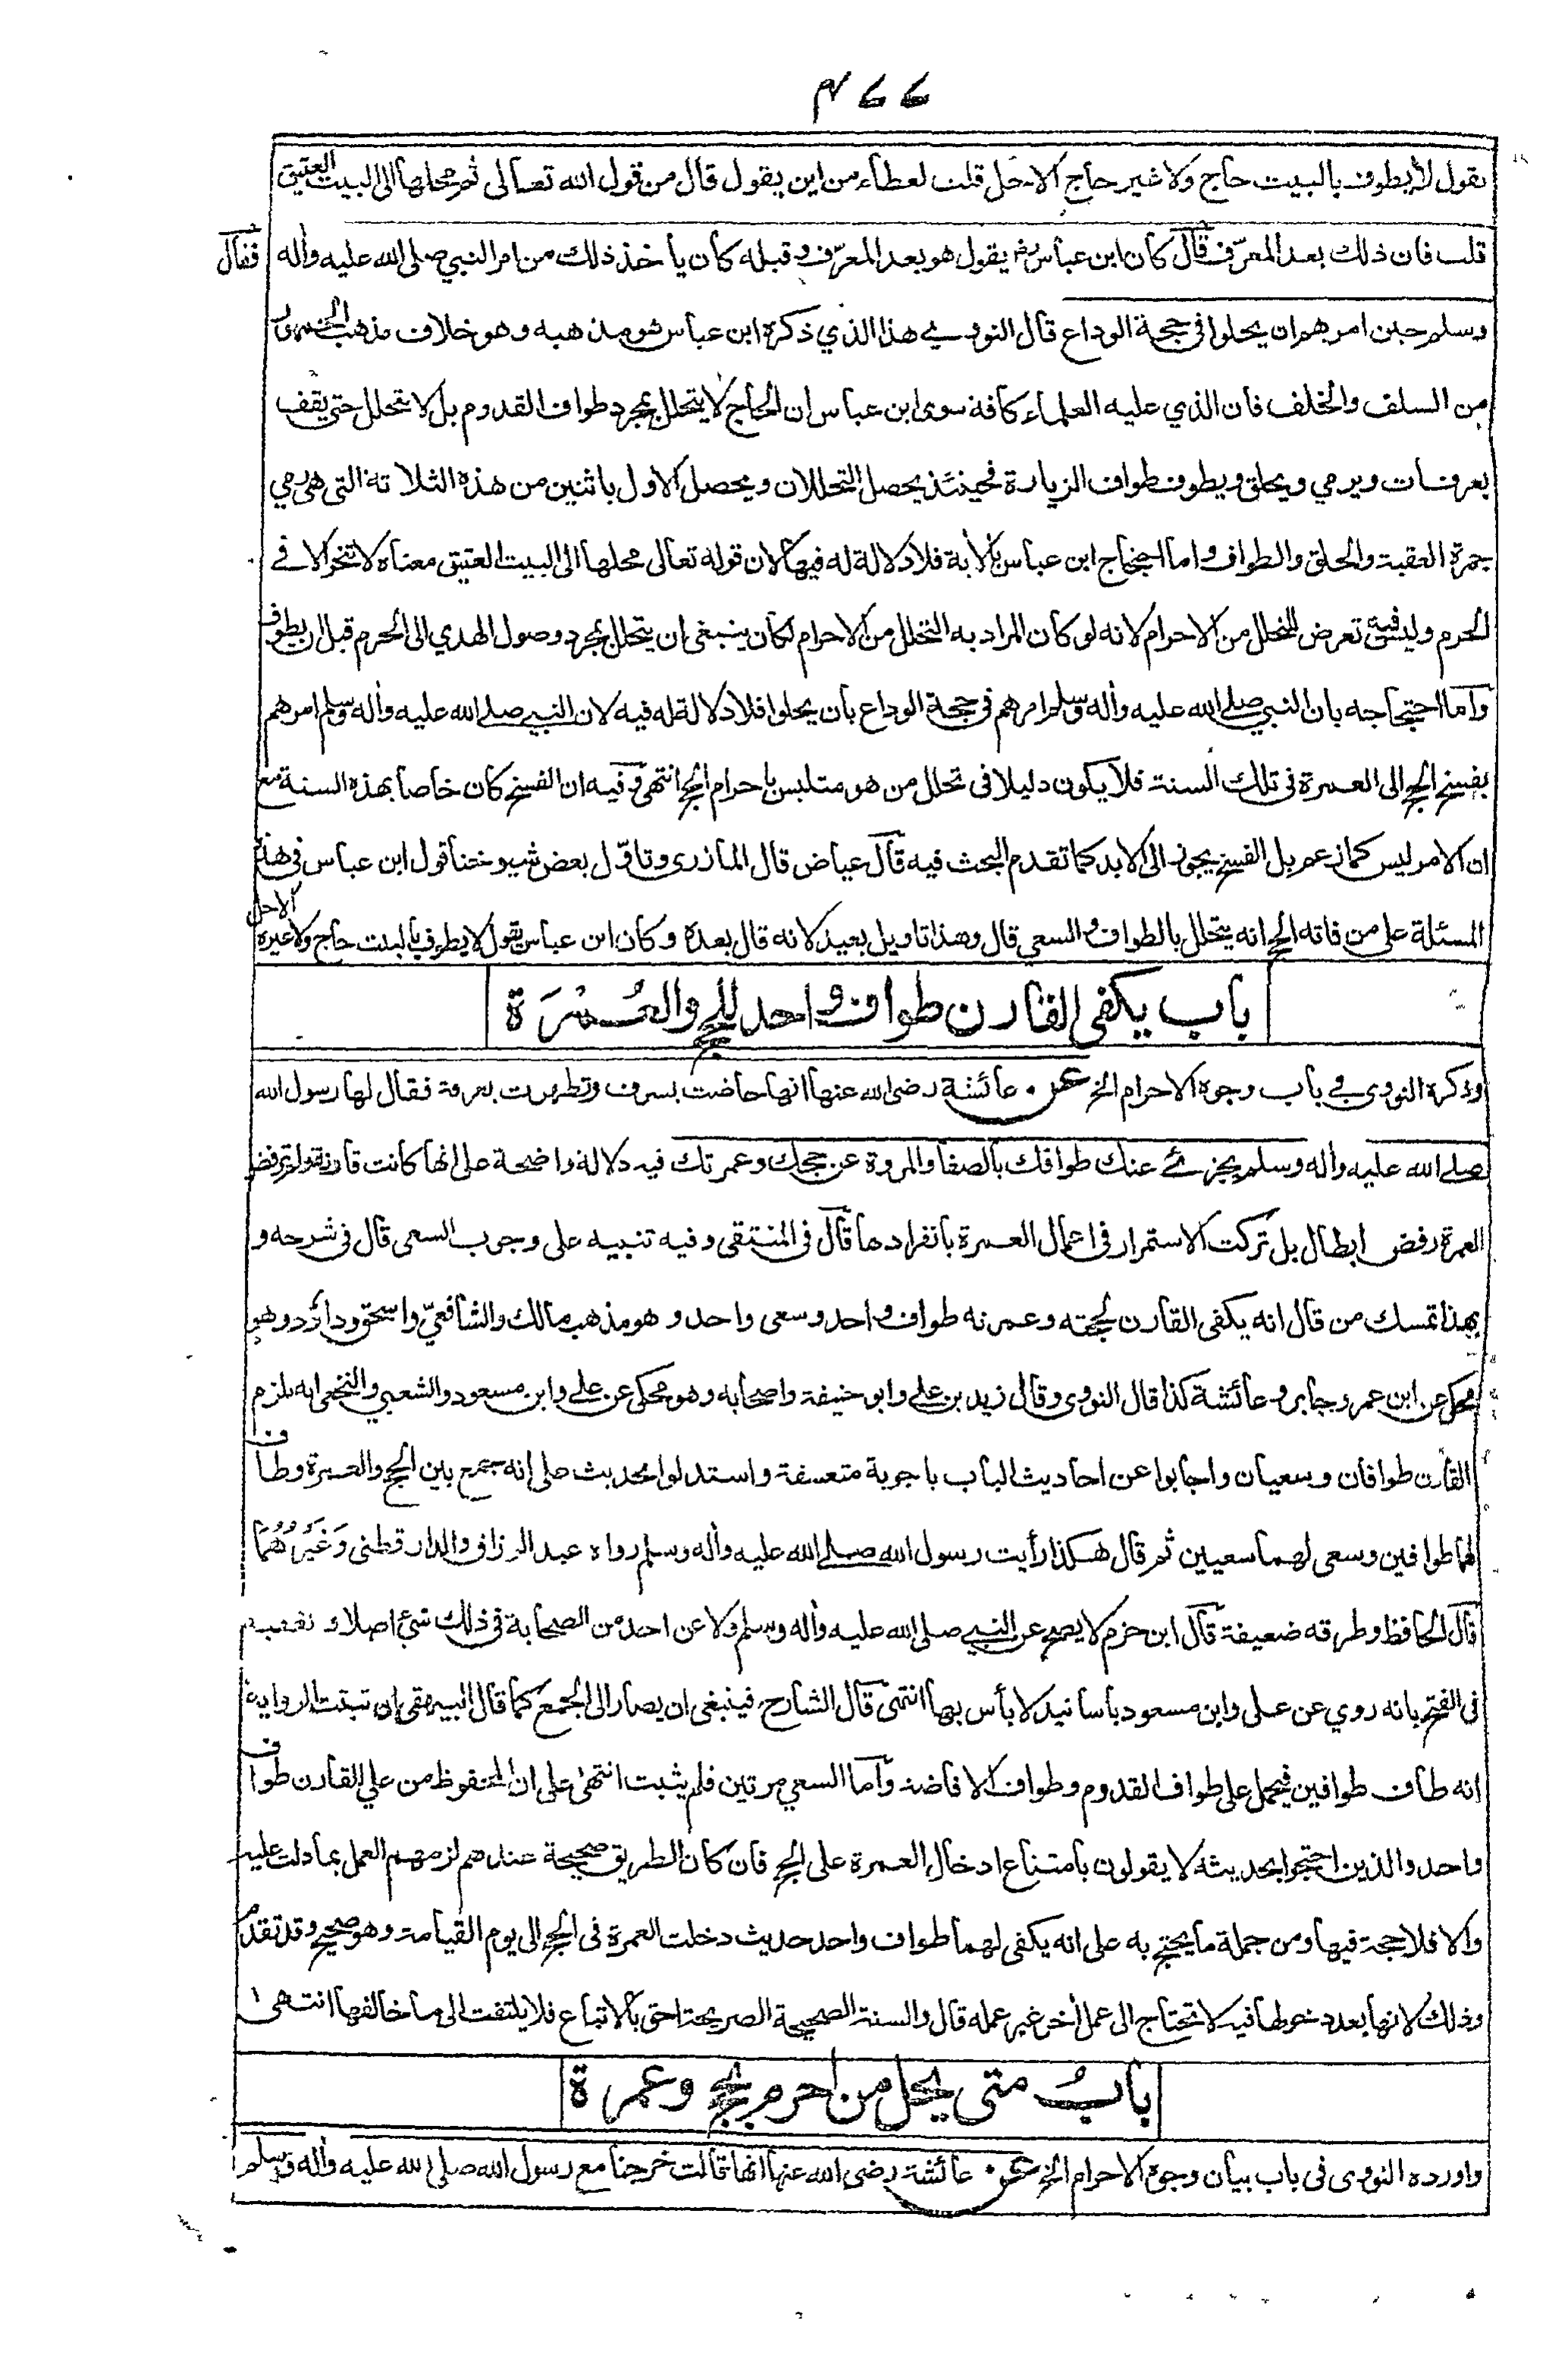 ٤٦٦
يقول لا يطوف بالبيت حاج ولا غير حاج الا حل قلت لعطاء من اين يقول قال من قول الله تعالى ثم محلها الى البيت العتيق
قلت فان ذلك بعد المعرّف قال كان ابن عباس رضـ يقول هو بعد المعرّف وقبله كان يأخذ ذلك من امر النبي صلى الله عليه وأله فقال
وسلم حين امرهم ان يحلوا في حجة الوداع قال النووي هذا الذي ذكره ابن عباس هو مذهبه وهو خلاف مذهب الجمهور
من السلف والخلف فان الذي عليه العلماء كافة سوى ابن عباس ان الحاج لا يتحلل بمجرد طواف القدوم بل لا يتحلل حتى يقف
بعرفات ويرمي ويحلق ويطوف طواف الزيارة فحينئذ يحصل التحللان ويحصل الاول باثنين من هذه الثلاثة التي هي رمي
جمرة العقبة والحلق والطواف واما احتجاج ابن عباس بالأية فلا دلالة له فيها لان قوله تعالى محلها الى البيت العتيق معناه لا تنحر الا في
الحرم وليس فيه تعرض للتحلل من الاحرام لانه لو كان المراد به التحلل من الاحرام لكان ينبغي ان يتحلل بمجرد وصول الهدي الى الحرم قبل ان يطوف
واما احتجاجه بان النبي صلى الله عليه وأله وسلم امرهم في حجة الوداع بان يحلوا فلا دلالة له فيه لان النبي صلى الله عليه وأله وسلم امرهم
بفسخ الحج الى العمرة في تلك السنة فلا يكون دليلا في تحلل من هو متلبس باحرام الحج انتهى وفيه ان الفسخ كان خاصا بهذه السنة مع
ان الامر ليس كما زعم بل الفسخ يجوز الى الابد كما تقدم البحث فيه قال عياض قال المازري وتاوّل بعض شيوخنا قول ابن عباس في هذه
المسئلة على من فاته الحج انه يتحلل بالطواف والسعي قال وهذا تاويل بعيد لانه قال بعده وكان ابن عباس يقول لا يطوف بالبيت حاج ولا غيره الا حل
باب يكفى القارن طواف واحد للحج والعُمْرَة
وذكره النووى في باب وجوه الاحرام الخ عن عائشة رضى الله عنها انها حاضت بسرف وتطهرت بعرفة فقال لها رسول الله
صلى الله عليه وأله وسلم يجزئ عنك طوافك بالصفا والمروة عن حجك وعمرتك فيه دلالة واضحة على انها كانت قارنة ولم ترفض
العمرة رفض ابطال بل تركت الاستمرار فى اعمال العمرة بانفرادها قال فى المنتقى وفيه تنبيه على وجوب السعى قال فى شرحه و
بهذا تمسك من قال انه يكفى القارن لحجته وعمرته طواف واحد وسعى واحد وهو مذهب مالك والشافعيّ واسحق وداؤد وهو
محكى عن ابن عمر وجابر وعائشة كذا قال النووى وقال زيد بن علي وابو حنيفة واصحابه وهو محكى عن علي وابن مسعود والشعبي والنخعى انه يلزم
القارن طوافان وسعيان واجابوا عن احاديث الباب باجوبة متعسفة واستدلوا بحديث علي انه جمع بين الحج والعمرة وطاف
لهما طوافين وسعى لهما سعيين ثم قال هكذا رأيت رسول الله صلى الله عليه وأله وسلم رواه عبد الرزاق والدارقطنى وَغَيْرُهُمَا
قال الحافظ وطرقه ضعيفة قال ابن حزم لا يصح عن النبي صلى الله عليه وأله وسلم ولا عن احد من الصحابة في ذلك شئ اصلا وتعقبه
فى الفتح بانه روي عن على وابن مسعود بأسانيد لا بأس بها انتهى قال الشارح فينبغى ان يصار الى الجمع كما قال البيهقى ان تثبت الرواية
انه طاف طوافين فيحمل على طواف القدوم وطواف الافاضة واما السعي مرتين فلم يثبت انتهى على ان المحفوظ من علي القارن طواف
واحد والذين احتجوا بحديثه لا يقولون بامتناع ادخال العمرة على الحج فان كان الطريق صحيحة عندهم لزمهم العمل بما دلت عليه
والا فلا حجة فيها ومن جملة ما يحتج به على انه يكفى لهما طواف واحد حديث دخلت العمرة فى الحج الى يوم القيامة وهو صحيح وقد تقدم
وذلك لانها بعد دخولها فيه لا تحتاج الى عمل أخر غير عمله قال والسنة الصحيحة الصريحة احق بالاتباع فلا يلتفت الى ما خالفها انتهى
بابُ متى يحل من احرم بحج وعمرة
واورده النووى فى باب بيان وجوه الاحرام الخ عن عائشة رضى الله عنها انها قالت خرجنا مع رسول الله صلى الله عليه وأله وسلم